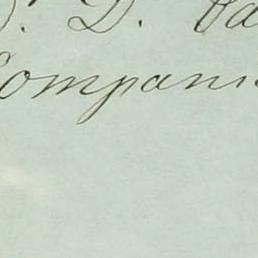 D. Va
Compani